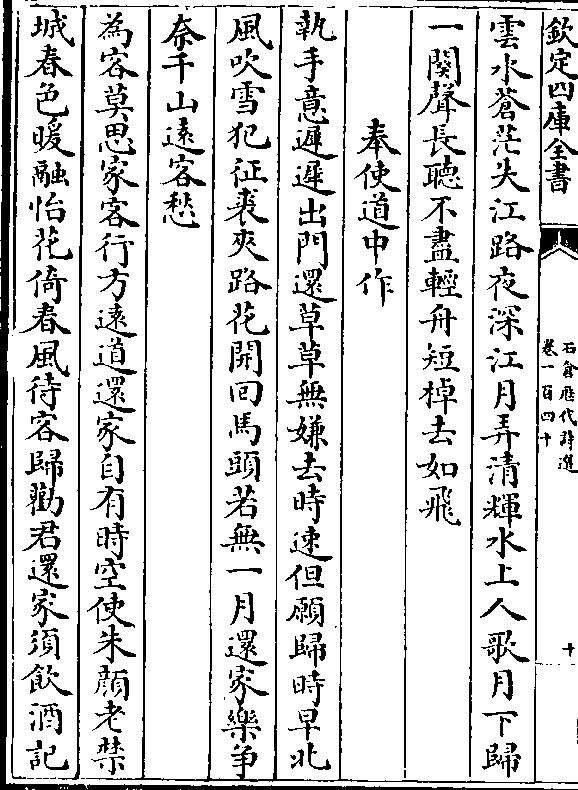 欽定四庫全書
石倉歷代詩選
卷一百四十
十
雲水蒼茫失江路夜深江月弄清輝水上人歌月下歸
一闋聲長聽不盡輕舟短棹去如飛
奉使道中作
執手意遲遲出門還草草無嫌去時速但願歸時早北
風吹雪犯征裘夾路花開回馬頭若無一月還家樂争
奈千山遠客愁
為客莫思家客行方遠道還家自有時空使朱顏老禁
城春色暖融怡花倚春風待客歸勸君還家須飲酒記